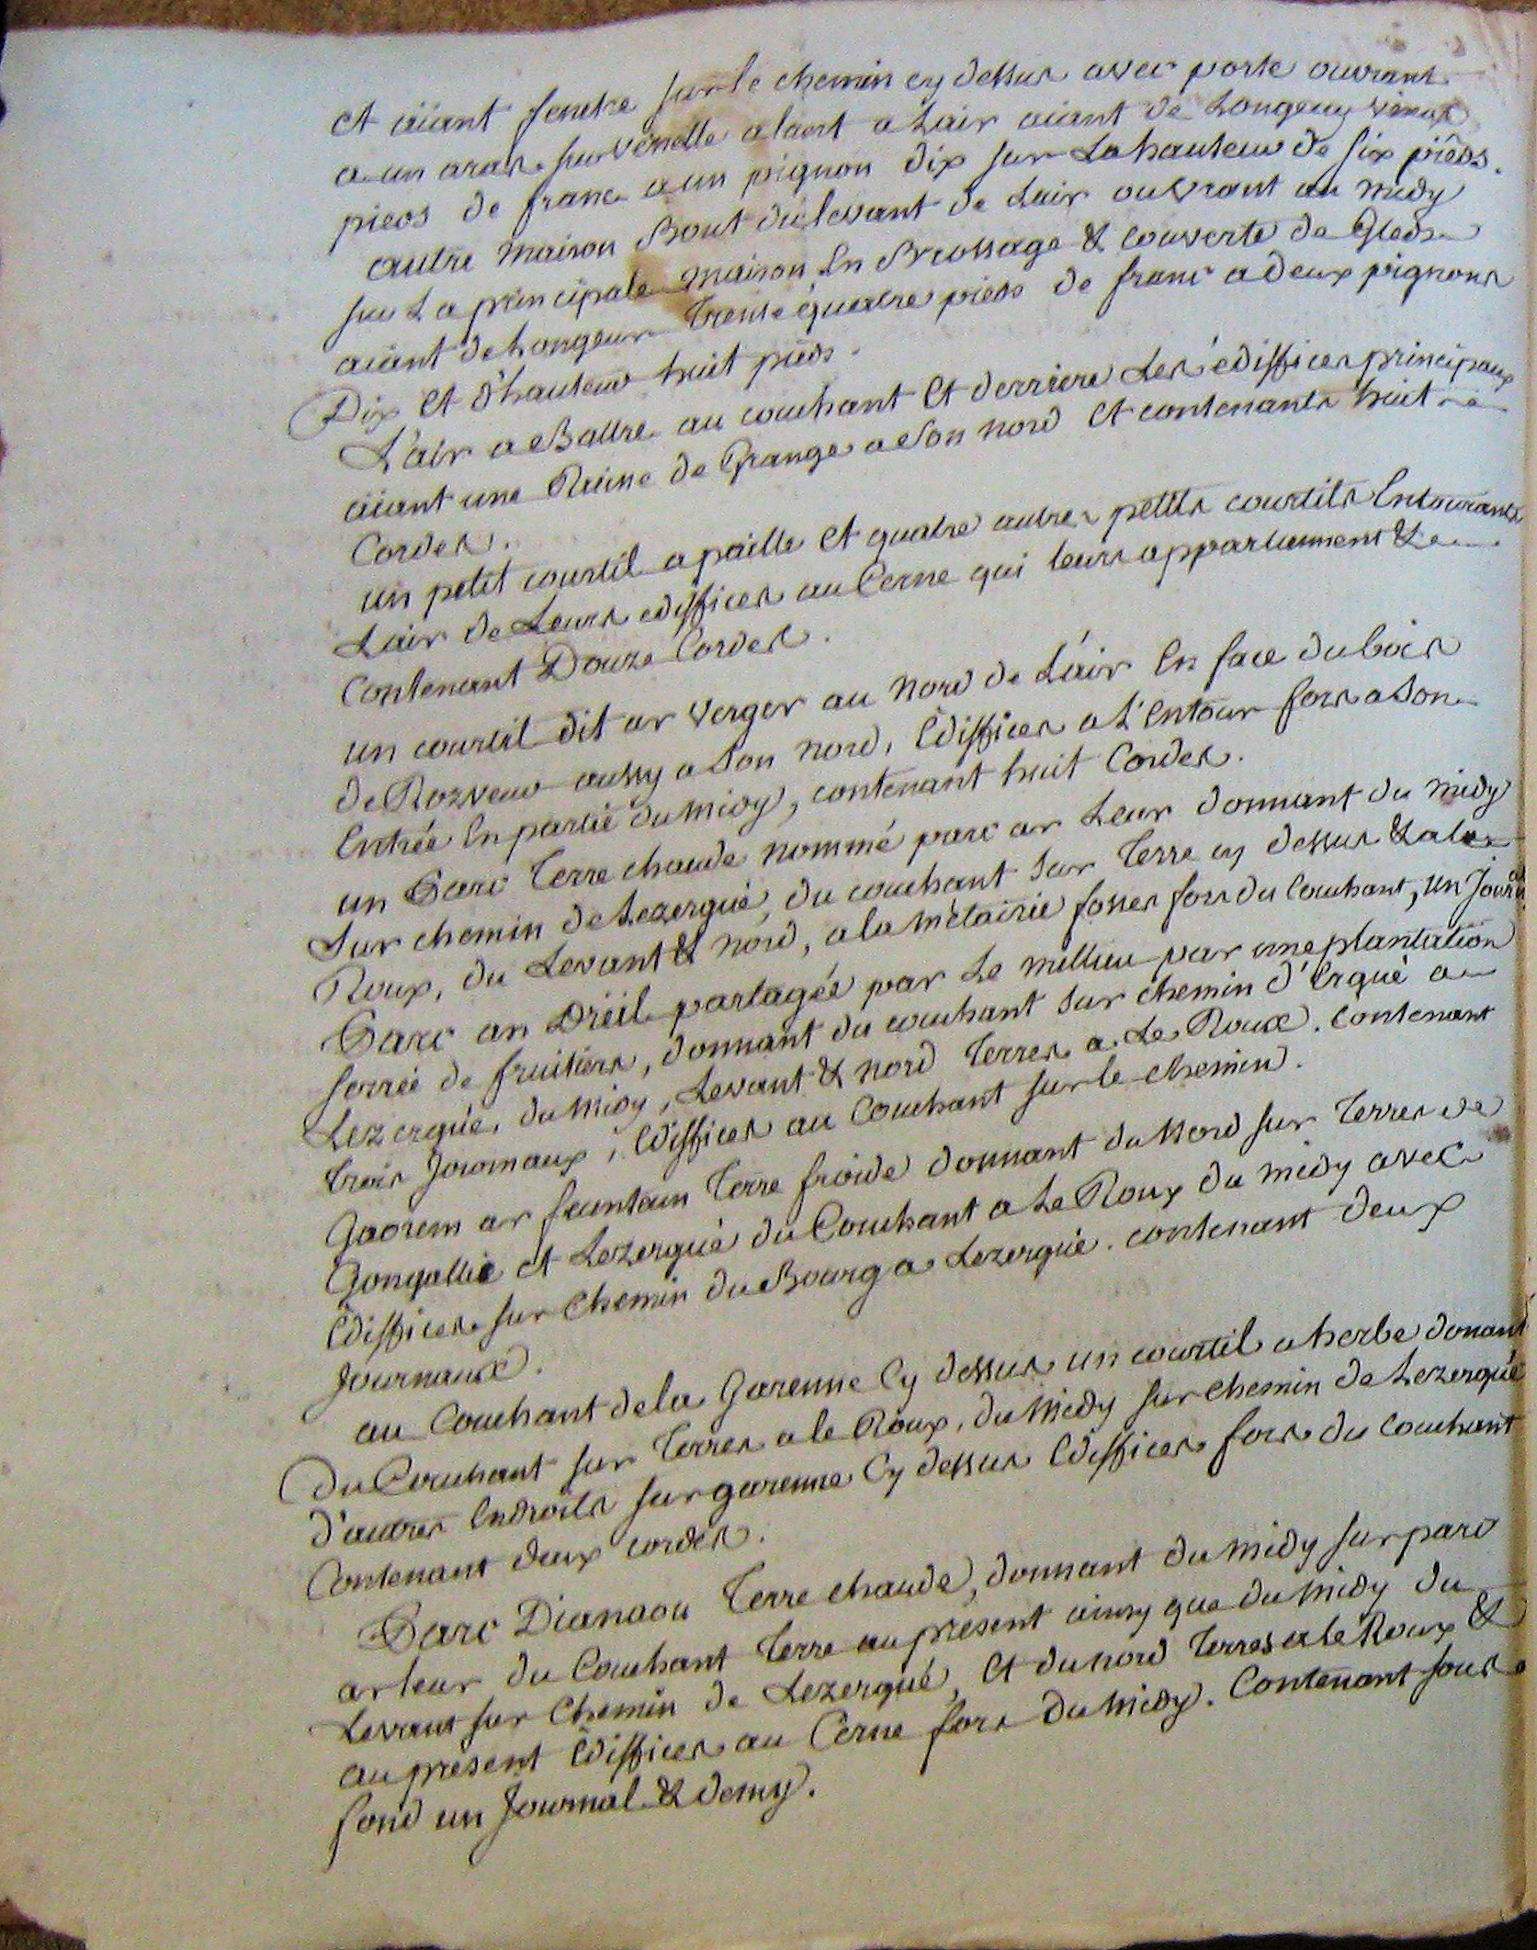 et aiant fenetre sur le chemin cy dessus avec porte ouvrant
a un aras sur venelle a lair aiant de Longeur vingt
pieds de franc a un pignon dix sur La hauteur de six pieds.
autre maison Bout du levant de Lair ouvrant au midy
sur La principale maison En Brossage & couverte de Gleds
aiant de Longeur Trente quatre pieds de franc a deux pignons
Dix et d'hauteur huit pieds.
L'air a Battre au couchant Et derriere Les édiffices principaux
aiant une Ruine de Grange a son nord et contenants huit
Cordes.
un petit courtil a paille et quatre autres petits courtils Entourants
Lair de Leurs ediffices au Cerne qui leurs appartiennent &
Contenant Douze Cordes.
un courtil dit ar verger au nord de L'air En face du bois
de Rozveur aussy a son nord, Ediffices a L'Entour fors a son
Entrée En partie du midy, contenant huit Cordes.
un Parc Terre chaude nommé parc ar Leur donnant du midy
Sur chemin de Lezergué, du couchant sur Terre cy dessus & a le
Roux, du Levant & nord, a la métairie fosses fors du couchant, un Journal
Parc an Dreil partagée par Le millieu par une plantation
forrée de fruitiers, donnant du couchant sur chemin d'Ergué a
Lezergué, du midy, Levant & nord Terres a Le Roux. Contenant
trois Journaux, Ediffices au Couchant sur le chemin.
Gaorem ar feunteun Terre froide donnant du Nord sur Terres de
Gongallic et Lezergué du Couchant a Le Roux du midy avec
Ediffices sur Chemin du Bourg a Lezergué. contenant deux
Journaux.
au Couchant de la Garenne Cy dessus un courtil a herbe donant
Du Couchant sur Terres a le Roux, du Midy sur chemin de Lezergué
d'autres Endroits sur garenne Cy dessus Ediffices fors du Couchant
Contenant deux cordes.
Parc Dianaou Terre chaude, donnant du midy sur parc
ar leur du Couchant Terre au présent ainsy que du Midy du
Levant sur Chemin de Lezergué, Et du nord Terres a le Roux &
au présent Ediffices au Cerne fors Du Midy. Contenant sous
fond un Journal & demy.